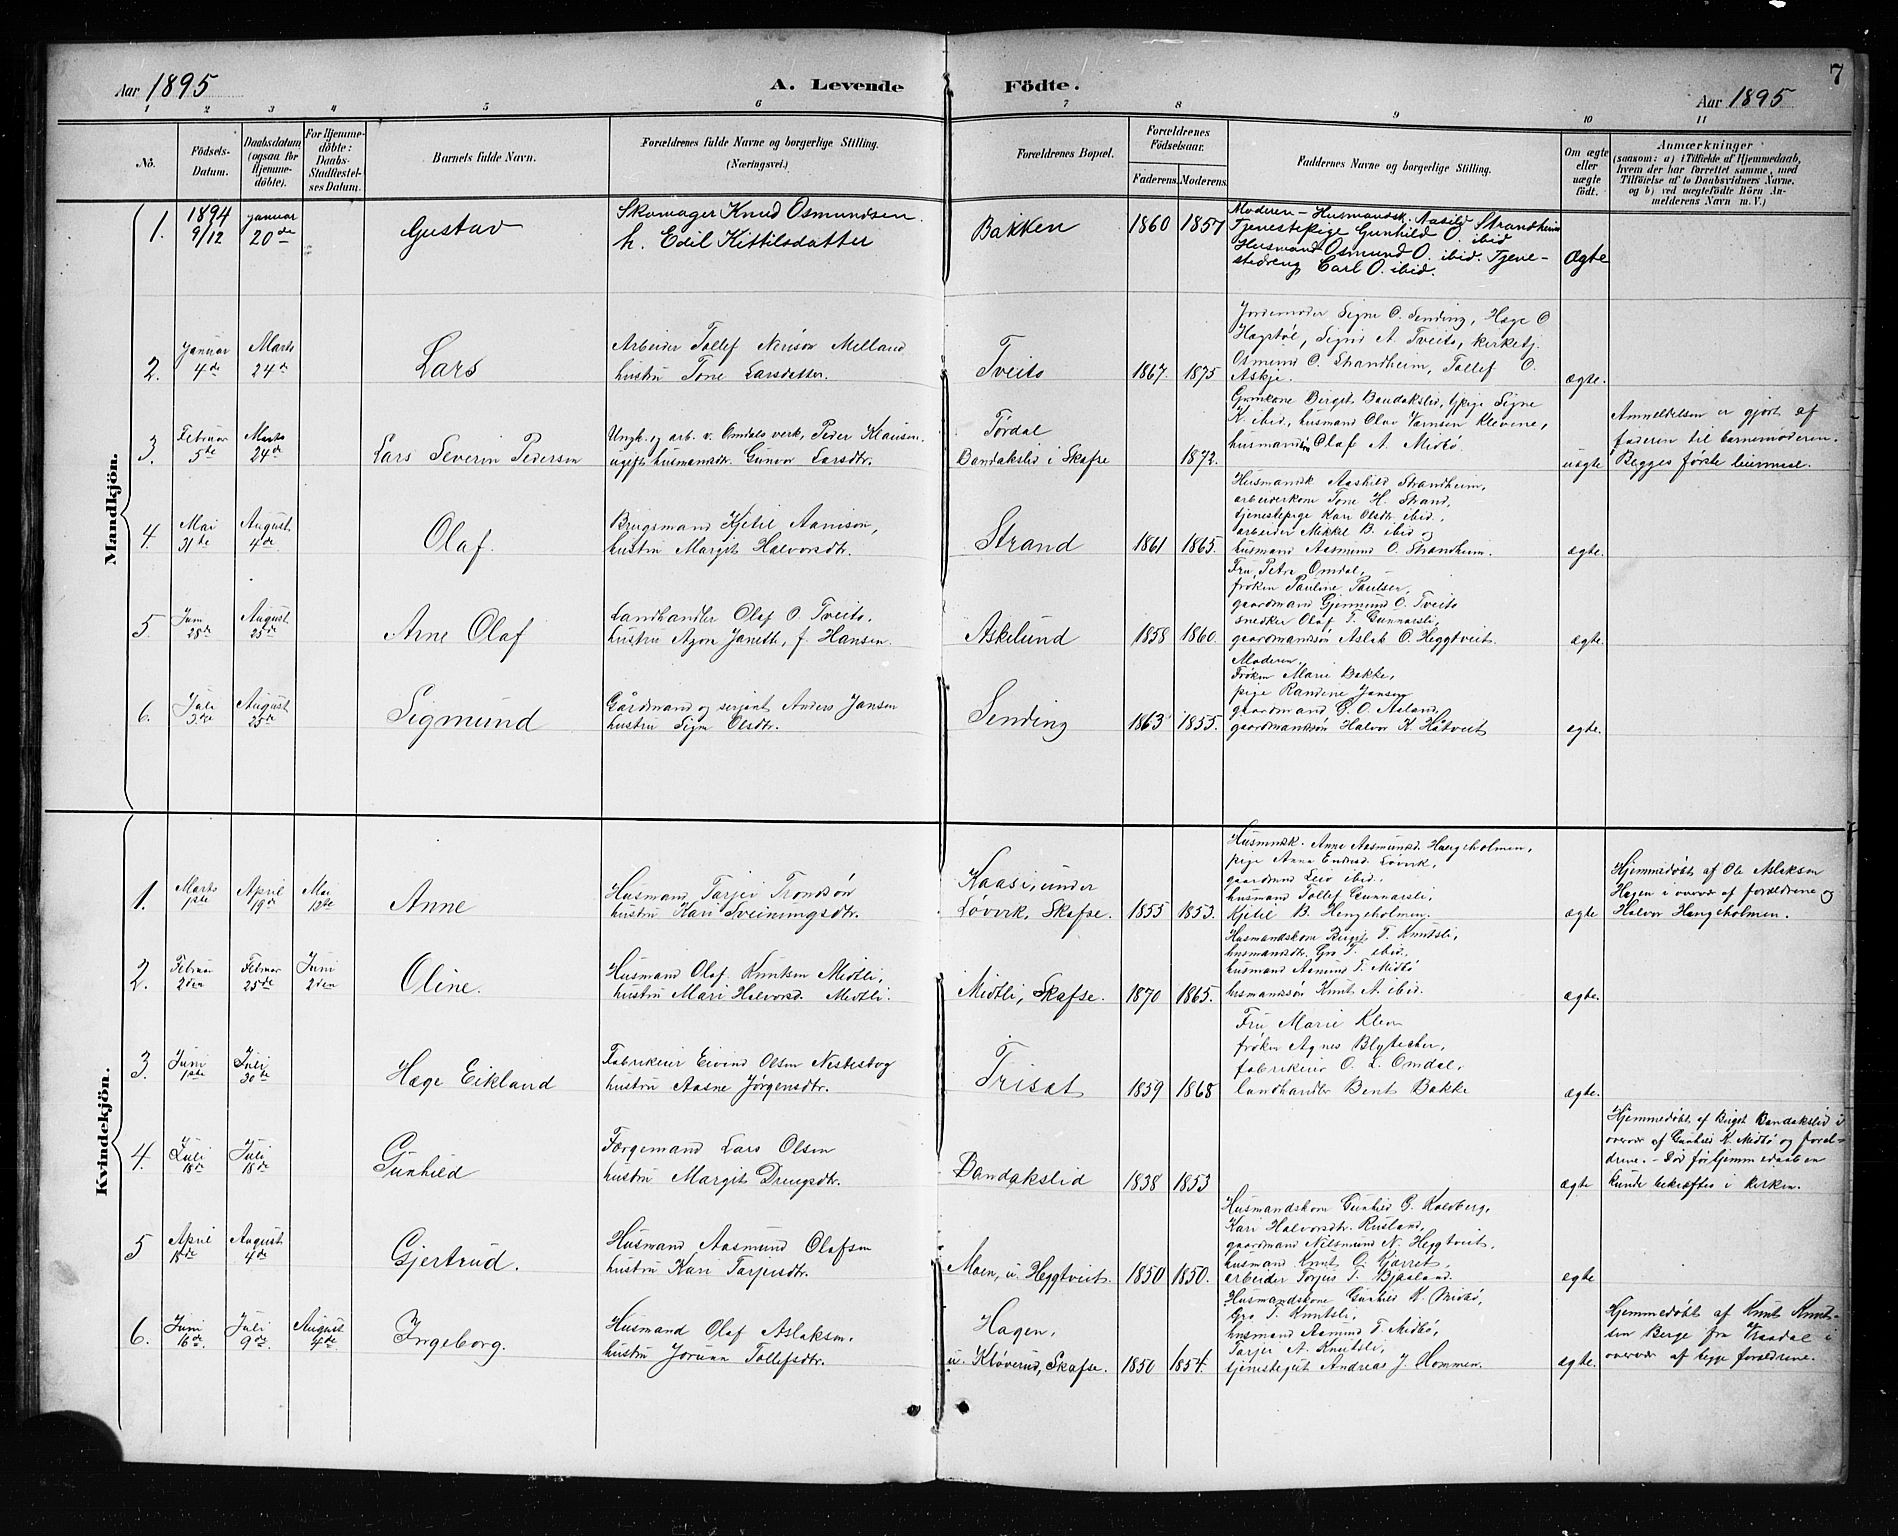 Aar 1895
A. Levende Födte.
7
Aar 1895
1 2 3 4 5 6 7 8 9 10 11
No.
Födsels-Datum.
Daabsdatum (ogsaa for Hjemme-döbte).
For Hjemme-döbte: Daabs-Stadfæstel-ses Datum.
Barnets fulde Navn.
Forældrenes fulde Navne og borgerlige Stilling. (Næringsvei.)
Forældrenes Bopæl.
Forældrenes Födselsaar.
Faderens. Moderens.
Faddernes Navne og borgerlige Stilling.
Om ægte eller uægte födt.
Anmærkninger
(saasom: a) i Tilfælde af Hjemmedaab, hvem der har forrettet samme, med Tilföielse af to Daabsvidners Navne, og b) ved uægtefödte Börn An-melderens Navn m. V.)
Mandkjön.
1. 1894 9/12 Januar 20de Gustav
Skomager Knud Osmundsen
h. Edil Kittilsdatter
Bakken 1860 1857
Moderen - Husmandsk. Aasild Strandheim
Tjenestepige Gunhild O. ibid
Husmand Osmund O. ibid. Tjene-
stedreng Carl O. ibid.
Ægte
2. Januar 4de Marts 24de Lars
Arbeider Tollef Nerison Melland
hustru Tone Larsdatter.
Tveito 1867. 1875
Jordemoder Signe O. Sending, Hæge O
Hagstøl, Sigrid A. Tveito, kirketj.
Osmund O. Strandheim, Tollef O.
Askje.
ægte.
3. Februar 5te Marts 24de Lars Severin Pedersen
Ungk. og arb. v. Omdals verk, Peder Klausen
ugift husmandsdtr. Gunvor Larsdtr.
Tørdal
Bandakslid i Skafse 1872.
Birget Bandakslid, Pige Signe
K. ibid, husmand Olav Klevene,
husmandssøn Olaf A. Midbø
uægte
Anmeldelsen er gjort af
faderen til barnemoderen.
Begges første leiermaal.
4. Mai 31te August 4de Olaf.
Brugsmand Kjetil Aanison,
hustru Margit Halvorsdtr.
Strand 1861 1865.
Husmandsk Aashild Strandheim,
arbeiderkone Tone H. Strand,
tjenestepige Kari Olsdtr ibid.,
arbeider Mikkel B. ibid og
husmand Aasmund O. Strandheim.
ægte.
5. Juni 28de August 25de Arne Olaf
Landhandler Olaf O. Tveito,
hustru Janeth, f. Hansen.
Askelund 1858 1860.
Fru Petra Omdal,
frøken Pauline Paulsen,
gaardmand Gjermund O. Tveito
snedker Olaf T. Gunnarsli,
gaardmandssøn Aslak O. Heggtveit.
ægte.
6. Juli 3die August 25de Sigmund
Gårdmand og serjant Anders Jansen
hustru Signe Olsdtr.
Sending 1863 1855.
Moderen,
Frøken Marie Bakke,
pige Randine Jansen
gaardmand O. Aaland
gaardmandssøn Halvor K. Håtveit
ægte.
Kvindekjön.
1. Marts 1ste April 19de Mai 12te Anne
Husmand Tarjei Trondsøn
hustru Kari Sveiningsdtr.
Kaasi, under
Løvirk, Skafse. 1855 1853.
Husmandsk. Anne Aasmundsd. Hængeholmen,
pige Anna Løvirk,
gaardmand ibid.
husmand Tollef Gunnarsli,
Kjetil B. Hengeholmen.
ægte
Hjemmedøbt af Ole Aslaksen
Hagen i overvær af forældrene og
Halvor Hængeholmen.
2. Februar 2den Februar 25de Juni 2den Oline.
Husmand Olaf Knutsen Midtli,
hustru Mari Halvorsd. Midtli.
Midtli, Skafse. 1870 1865.
Husmandskone Birgit T. Knutsli,
husmandsdtr. Gro T. ibid.
husmand Aamund T. Midbø
husmandssøn Knut A. ibid.
ægte.
3. Juni 1ste Juli 30te Hæge Eikland
Fabrikeier Eivind Olsen Nestestog
hustru Aasne Jørgensdtr.
Trisæt 1859 1868
Fru Marie Kleen
frøken Agnes Blytecher,
fabrikeier O. L. Omdal,
landhandler Bent Bakke
ægte.
4. Juli 18de Juli 18de Gunhild
Færgemand Lars Olsen
hustru Margit Drengsdtr.
Bandakslid 1838 1853
ægte
Hjemmedøbt af Birget Bandakslid i
overvær af Gunhild K. Midbø og foræl-
drene. - Død før hjemmedaaben
kunde bekræftes i kirken.
5 April 18de August 4de Gjertrud.
Husmand Aasmund Olafsen
hustru Kari Tarjeisdtr.
Moen, u. Heggtveit. 1850 1850.
Husmandskone Gunhild G. Kaldberg,
Kari Halvorsdtr. Rusland,
gaardmand Nilsmund N. Heggtveit,
husmand Knut O. Kjærret,
arbeider Torjus T. Bjaaland.
ægte
6. Juni 16de Juli 9de August 4de Ingeborg.
Husmand Olaf Aslaksen.
hustru Jorunn Tollefsdtr.
Hagen,
u. Kløverud, Skafse. 1850 1854.
Husmandskone Gunhild K. Midbø,
Gro T. Knutsli,
husmand Aamund T. Midbø,
Tarjer A. Knutsli,
tjenestegut Andreas J. Hommen.
ægte.
Hjemmedøbt af Knut Knut-
sen Berge fra Vraadal i
overvær af begge forældrene.